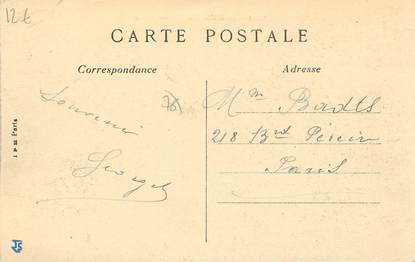 12 €
CARTE POSTALE
Correspondance
Adresse
Souvenir
Georget
Mme Badts
218 Brd Péreire
Paris
Paris
JC